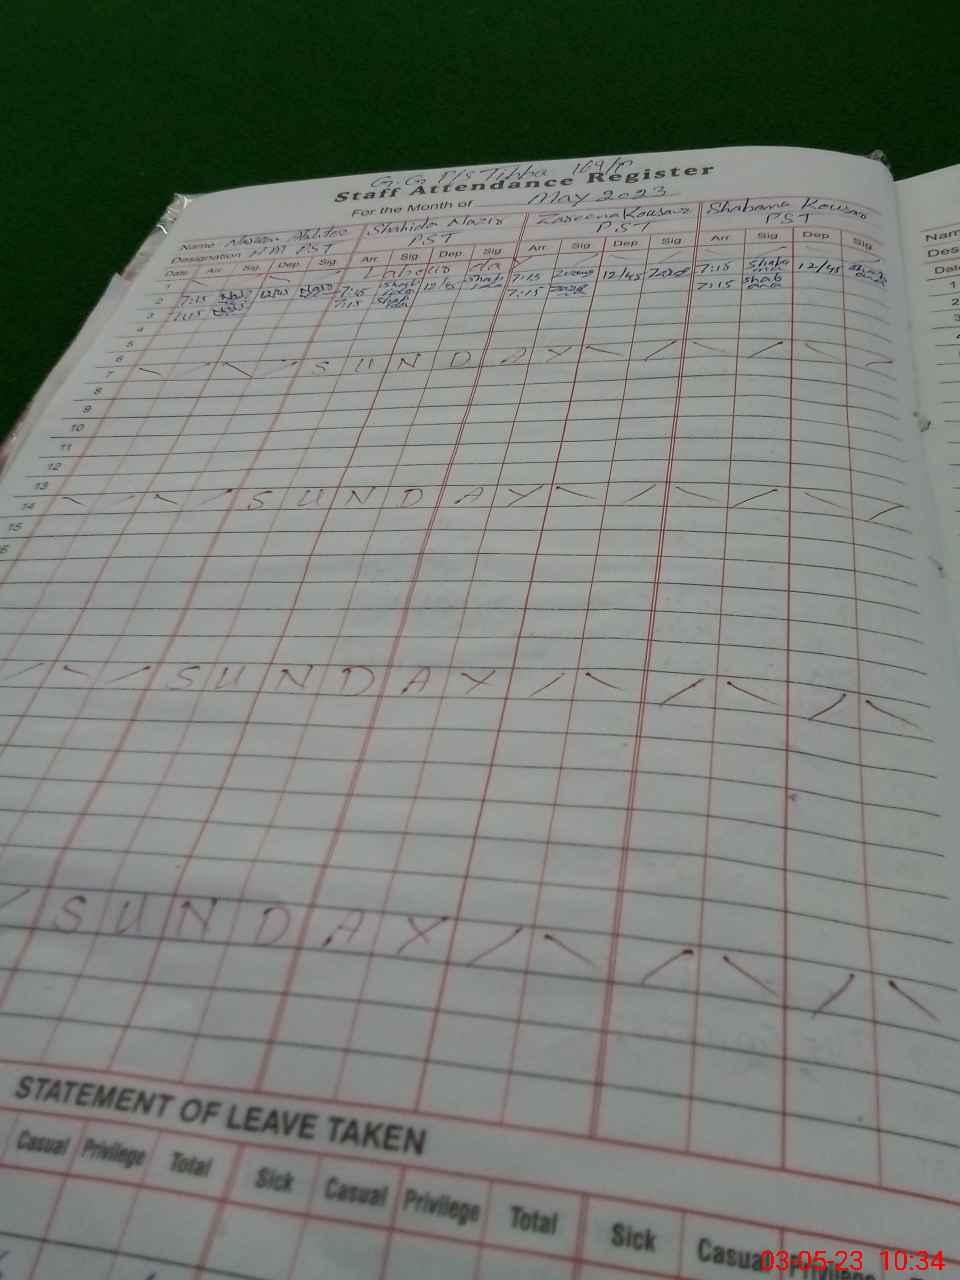 G.G P/S Tibba 169/P
Staff Attendance Register
For the Month of May 2023
Name Shahida Nazir Zareena Kousar Shabana Kousar
Designation PST PST PST PST
Date Arr. Sig. Dep. Sig. Arr. Sig Dep. Sig Arr. Sig Dep Sig Arr. Sig Dep Sig
1 Labour day
2 7:15 12/45 7:15 12/45 7:15 12/45 7:15 Shabana 12/45
3 7:15 7:15 7:15 7:15 Shabana
4
5
6
7 SUNDAY
8
9
10
11
12
13
14 SUNDAY
15
SUNDAY
SUNDAY
STATEMENT OF LEAVE TAKEN
Casual Privilege Total Sick Casual Privilege Total Sick Casual Privilege
Date
1
2
3
03-05-23 10:34